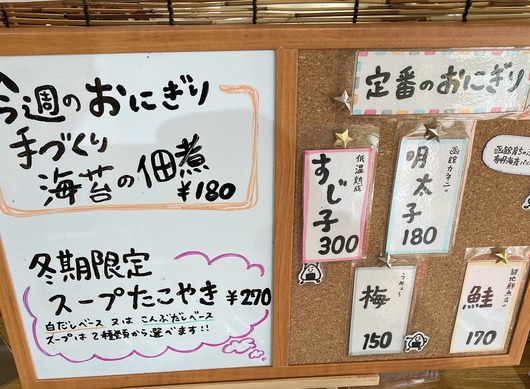 今週のおにぎり
手づくり
海苔の佃煮
¥180
冬期限定
スープたこやき ¥270
白だしベース 又は こんぶだしベース
スープは2種類から選べます!!
定番のおにぎり
低温熟成
すじ子
300
函館カネニの
明太子
180
うめぇ〜
梅
150
鮭
170